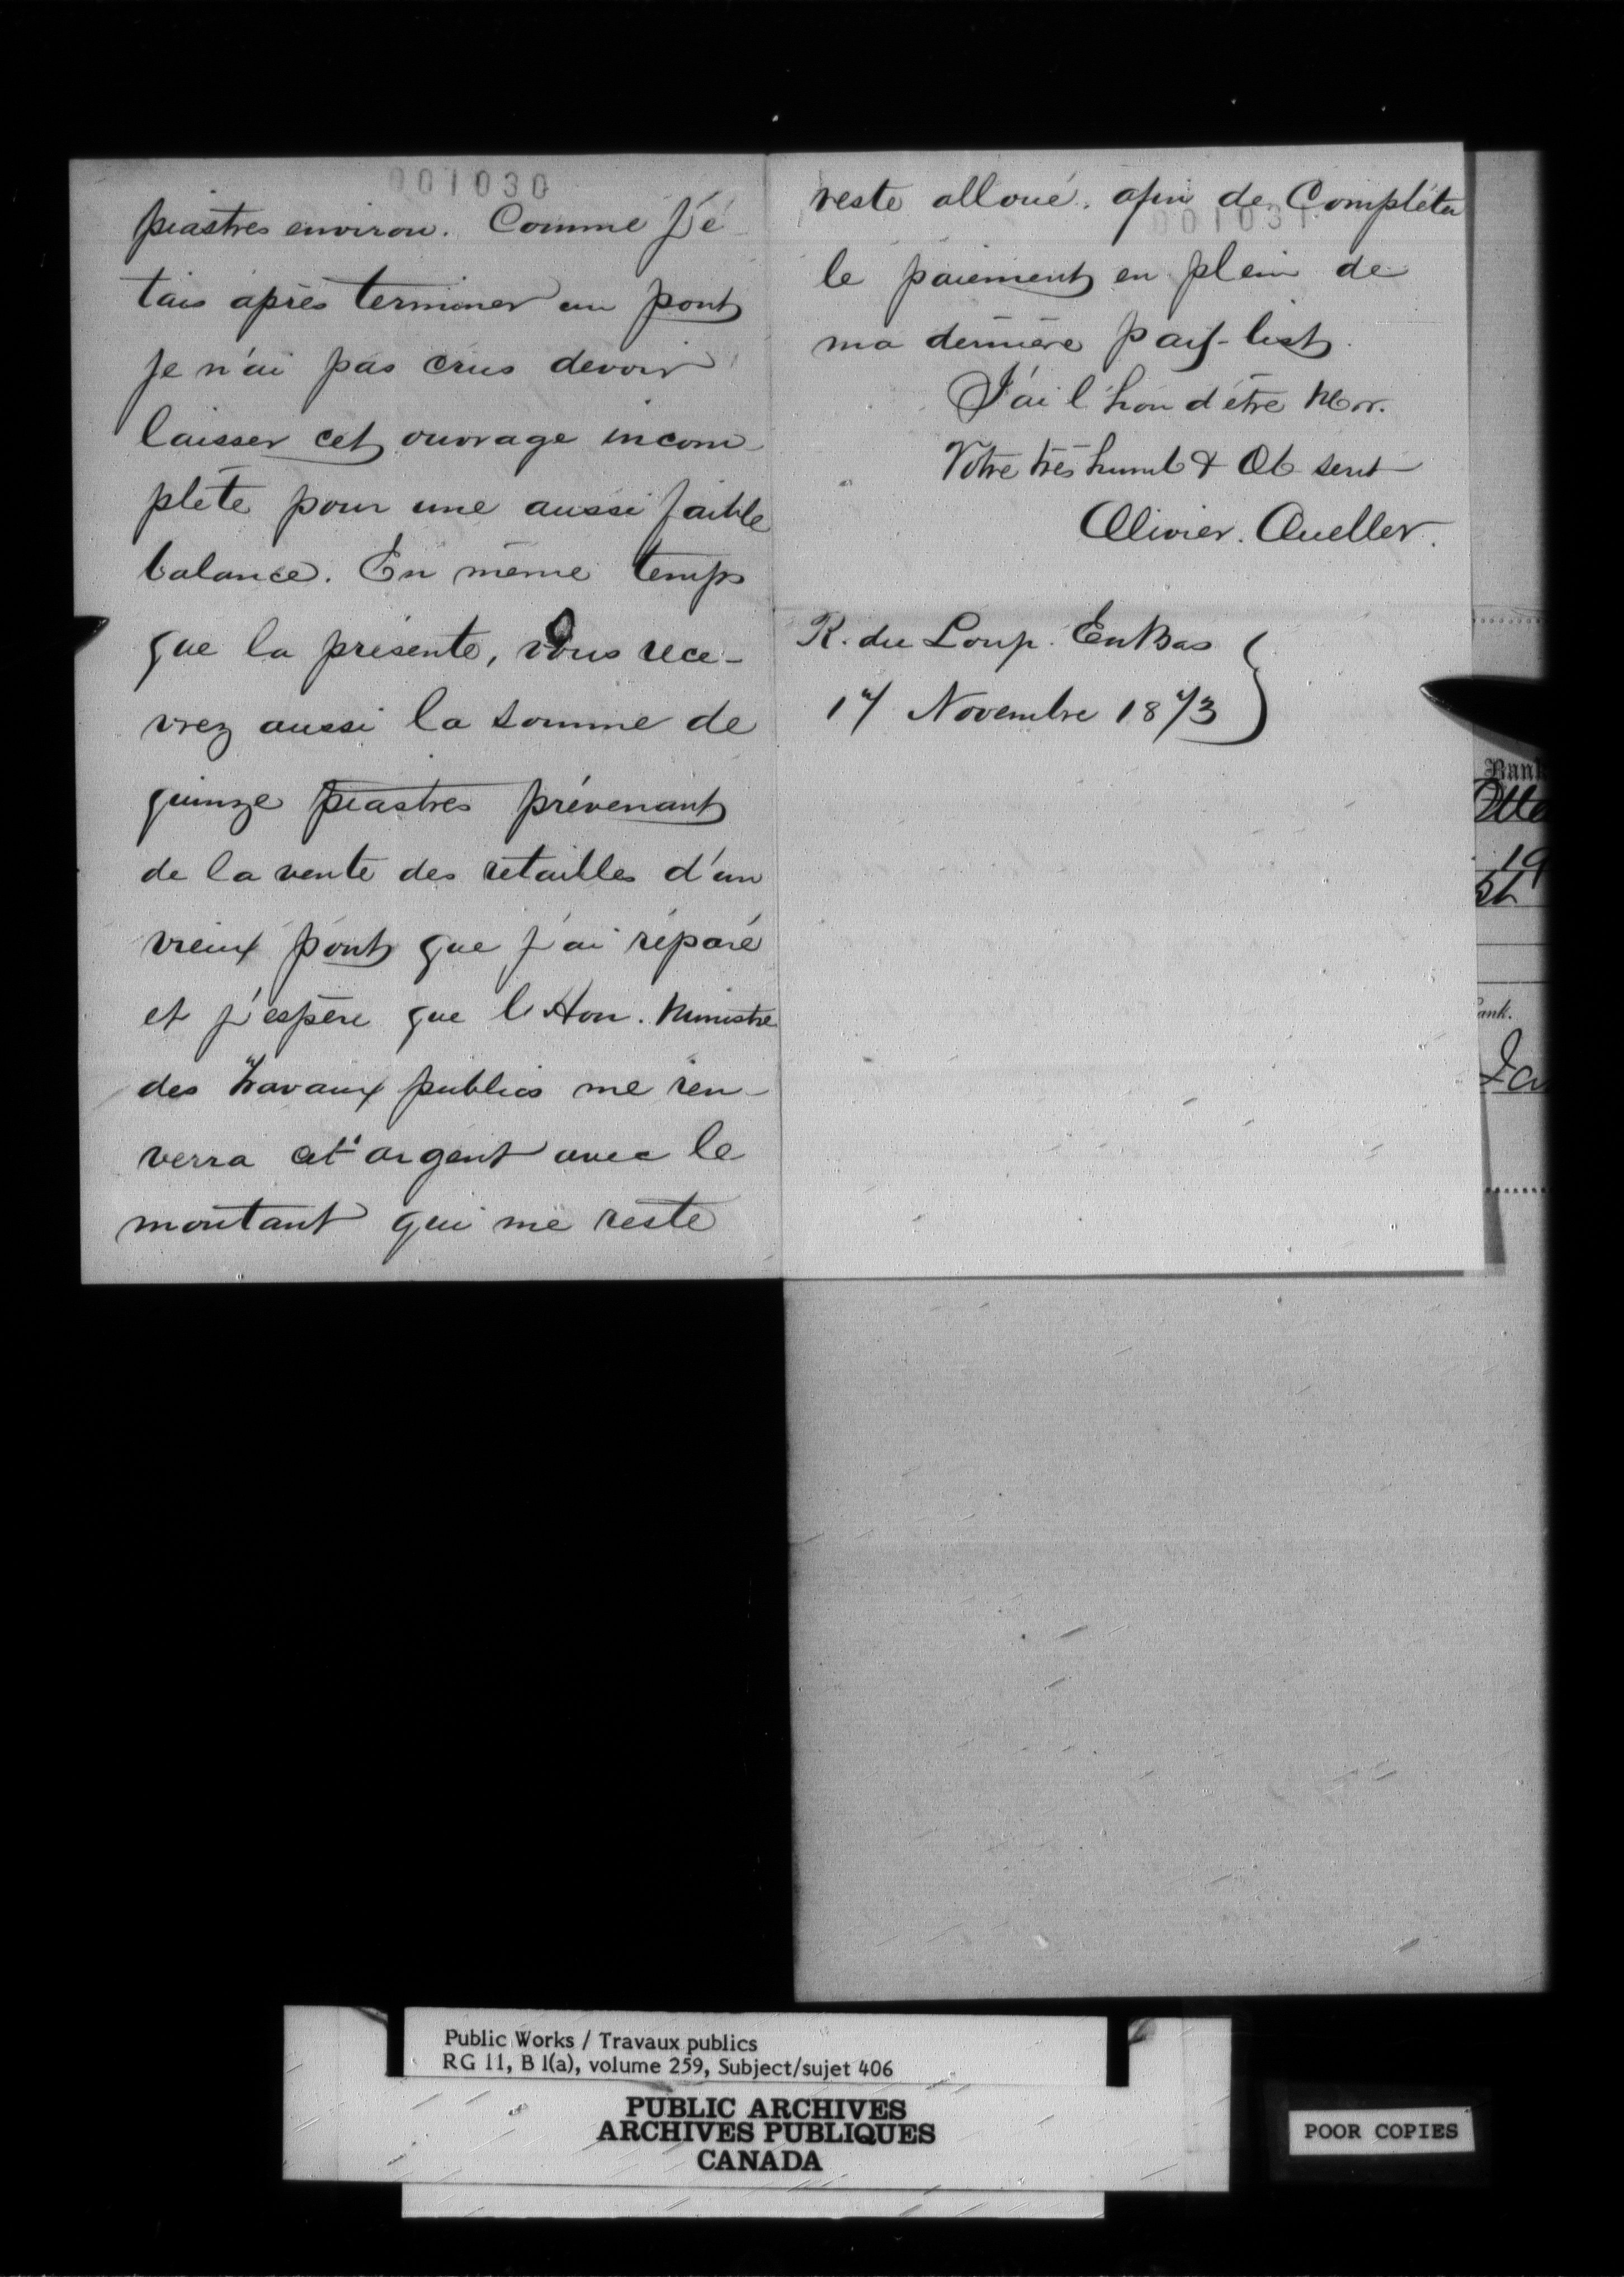 001030
piastres environ. Comme j'é
tais après terminer un pont
je n'ai pas crus devoir
laisser cet ouvrage incom-
plète pour une aussi faible
balance. En même temps
que la présente, vous rece-
vrez aussi la somme de
quinze piastres prévenant
de la vente des retailles d'un
vieux pont que j'ai réparé
et j'espère que l'Hon. Ministre
des Travaux publics me ren-
verra cet argent avec le
montant qui me reste
reste alloué. afin de Compléter
001031
le paiement en plein de
ma dernière pay-list.
J'ai l'hon d'être Mor.
Votre très humb & Ob servt
Olivier. Ouellet.
R. du Loup. EnBas
17 Novembre 1873
Bank
Otta
19
st
ank.
Public Works / Travaux publics
RG 11, B 1(a), volume 259, Subject/sujet 406
PUBLIC ARCHIVES
ARCHIVES PUBLIQUES
CANADA
POOR COPIES